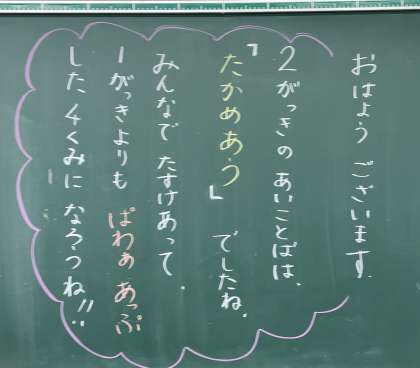 おはよう ございます。
2がっきの あいことばは、
『たかめあう』でしたね。
みんなで たすけあって、
1がっきよりも ぱわぁ あっぷ
した 4くみに なろうね!!